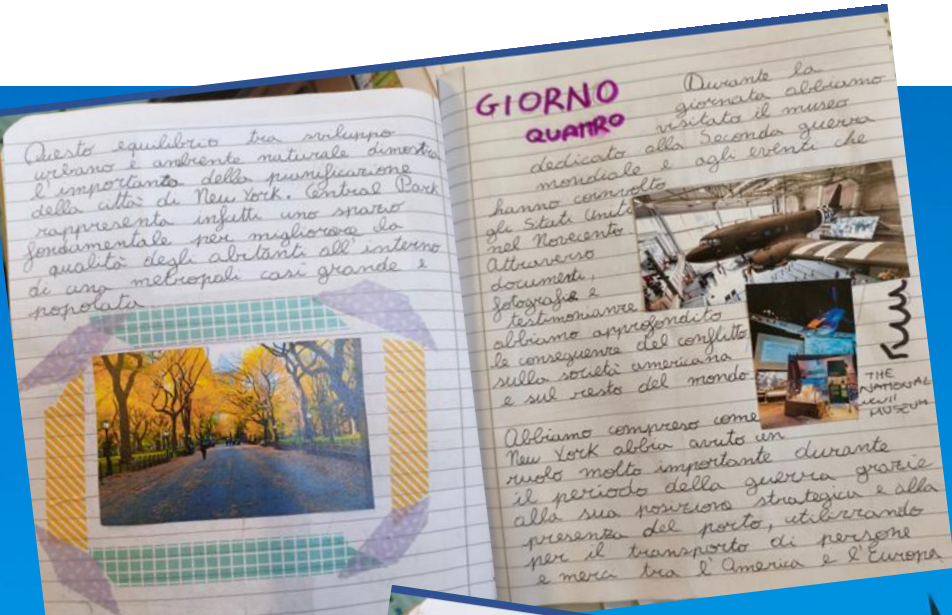 Questo equilibrio tra sviluppo
urbano e ambiente naturale dimostra
l'importanza della pianificazione
della città di New York. Central Park
rappresenta infatti uno spazio
fondamentale per migliorare la
qualità degli abitanti all'interno
di una metropoli casi grande e
popolata
GIORNO
QUATTRO
Durante la
giornata abbiamo
visitato il museo
dedicato alla Seconda guerra
mondiale e agli eventi che
hanno coinvolto
gli Stati Uniti
nel Novecento
Attraverso
documenti,
fotografie e
testimonianze
abbiamo approfondito
le conseguenze del conflitto
sulla società americana
e sul resto del mondo.
THE
NATIONAL
WWII
MUSEUM
Abbiamo compreso come
New York abbia avuto un
ruolo molto importante durante
il periodo della guerra grazie
alla sua posizione strategica e alla
presenza del porto, utilizzando
per il transporto di persone
e merci tra l'America e l'Europa